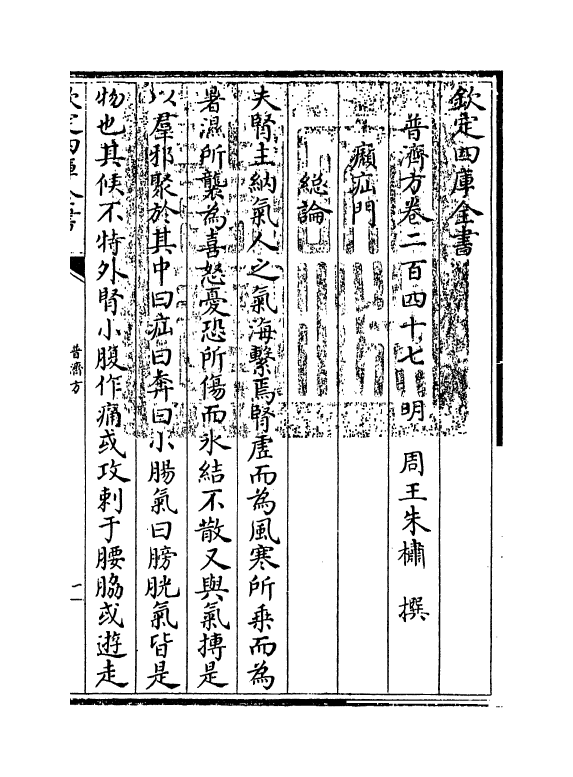 欽定四庫全書
普濟方卷二百四十七　明　周王朱橚　撰
癩疝門
總論
夫腎主納氣人之氣海繫焉腎虛而為風寒所乗而為
暑濕所襲為喜怒憂恐所傷而氷結不散又與氣摶是
以羣邪聚於其中曰疝曰奔曰小腸氣曰膀胱氣皆是
物也其候不特外腎小腹作痛或攻刺于腰脇或遊走
欽定四庫全書
普濟方
一